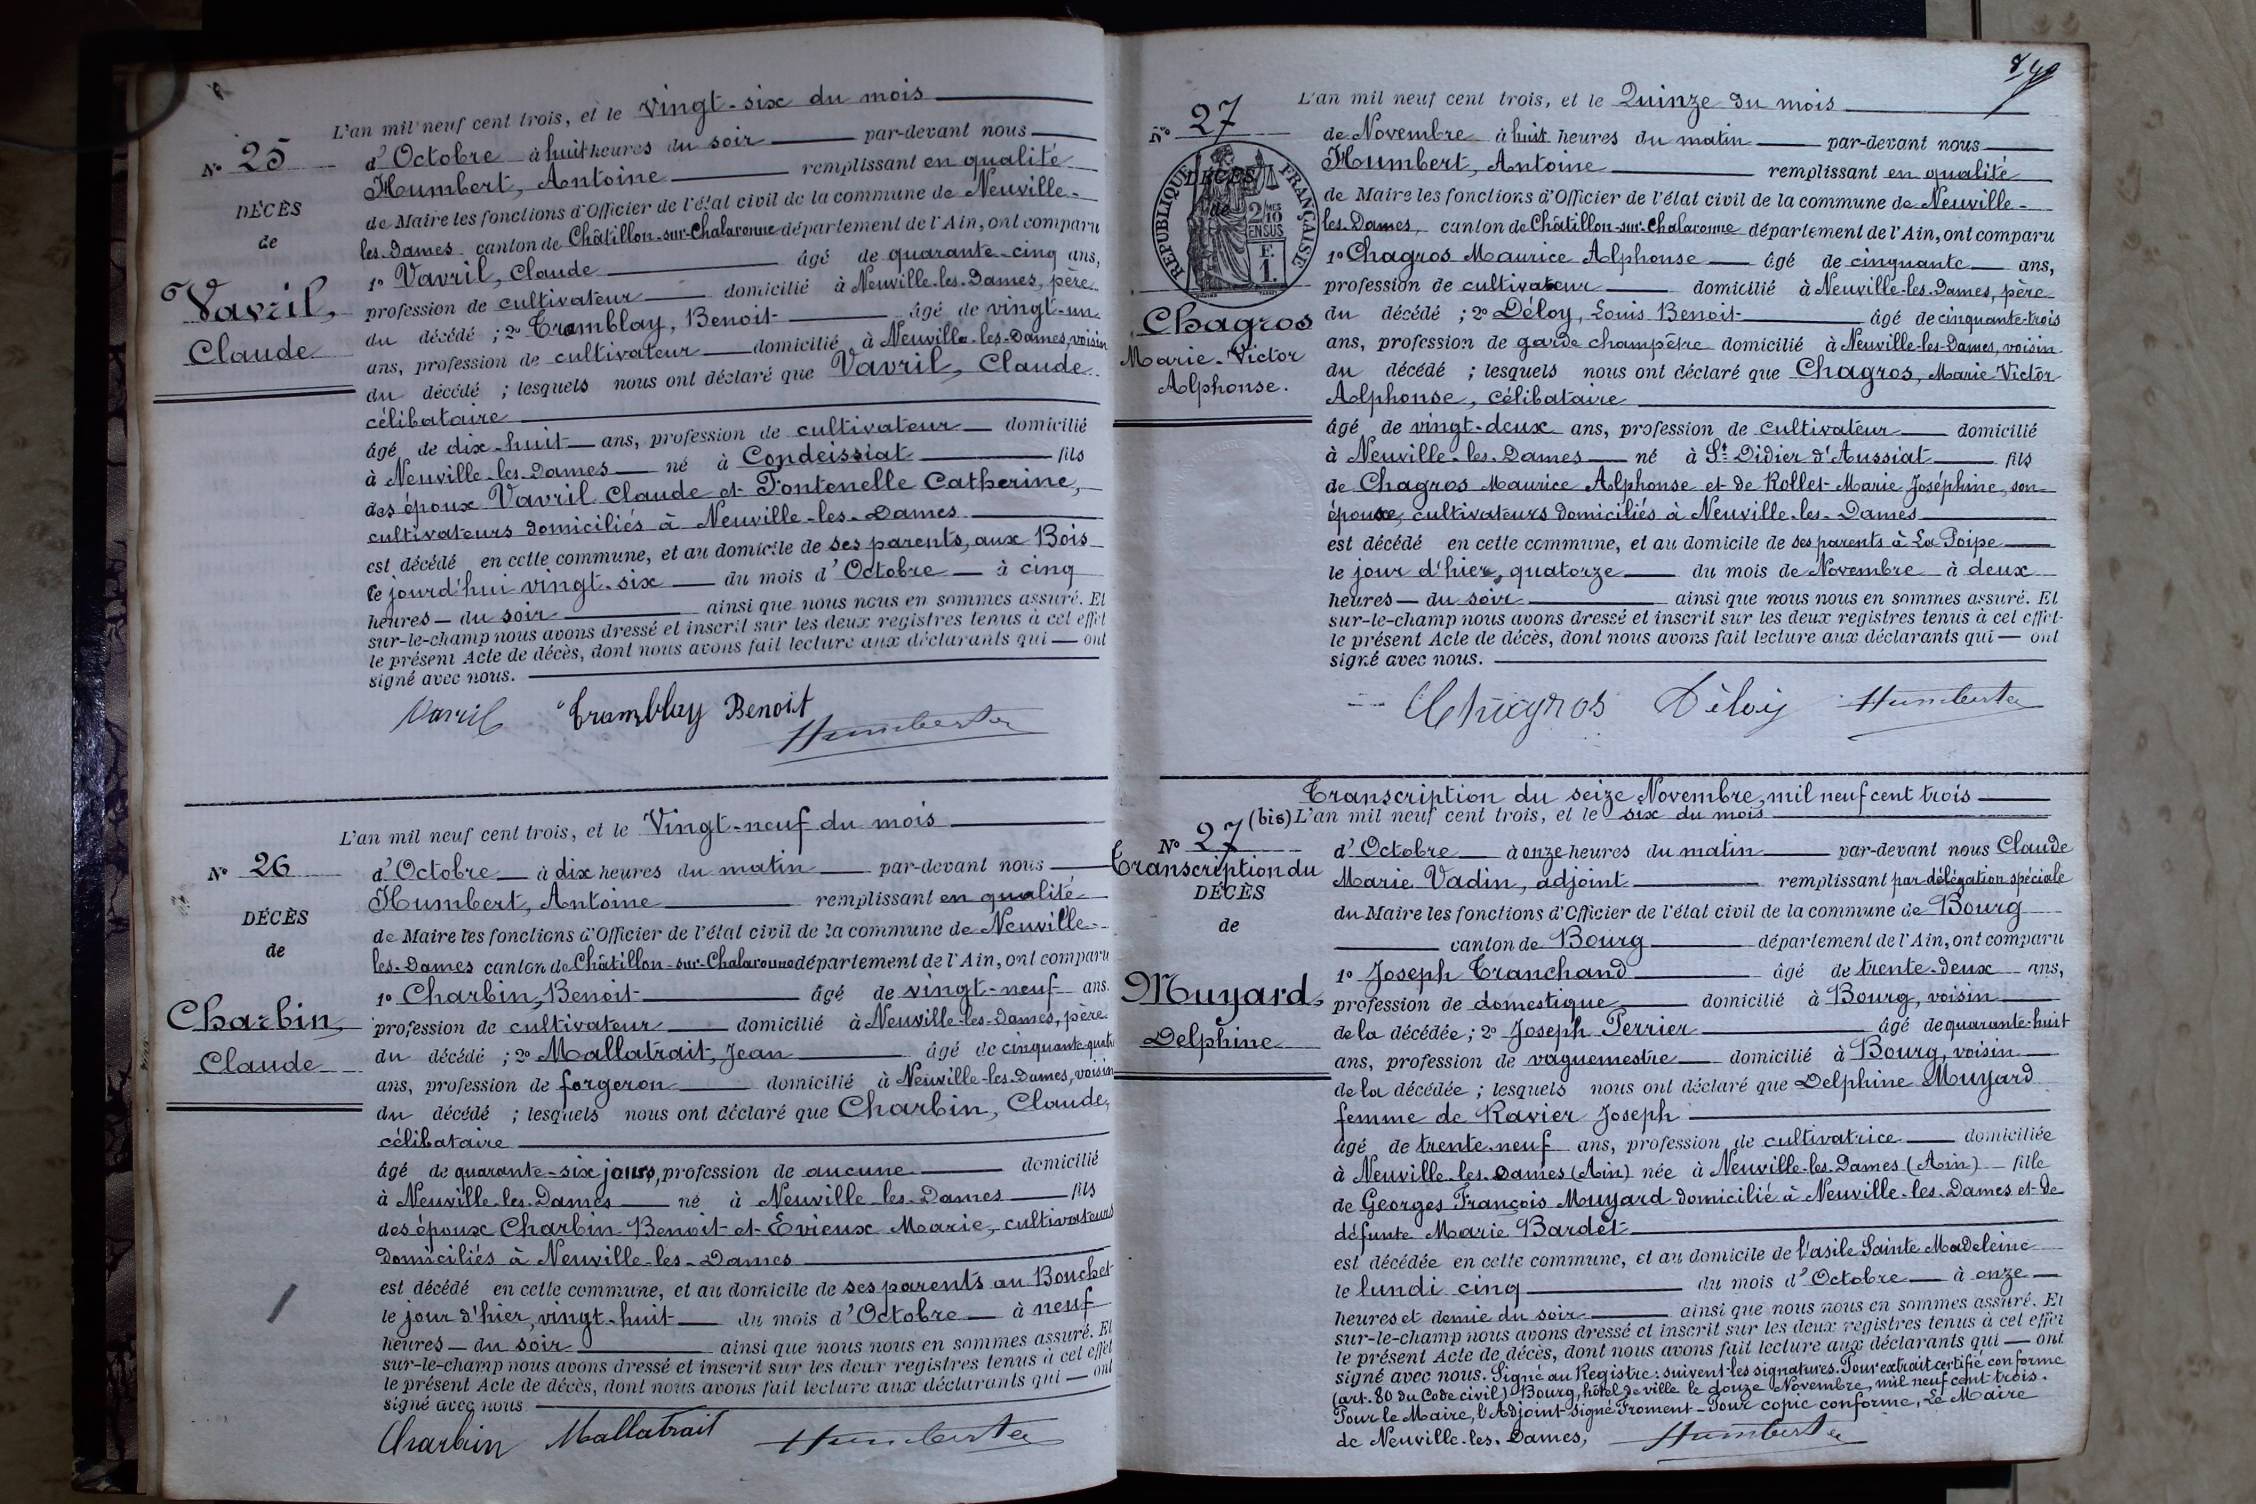 L'an mil neuf cent trois, et le Vingt-six du mois
N° 25
d'Octobre à huit heures du soir par-devant nous
Humbert, Antoine remplissant en qualité
DÉCÈS
de Maire les fonctions d'Officier de l'état civil de la commune de Neuville-
de
les-Dames canton de Châtillon-sur-Chalaronne département de l'Ain, ont comparu
1° Vavril, Claude âgé de quarante-cinq ans,
Vavril,
profession de cultivateur domicilié à Neuville-les-Dames, père
Claude
du décédé ; 2° Tramblay, Benoit âgé de vingt-un
ans, profession de cultivateur domicilié à Neuville-les-Dames, voisin
du décédé ; lesquels nous ont déclaré que Vavril, Claude
célibataire
âgé de dix-huit ans, profession de cultivateur domicilié
à Neuville-les-Dames né à Condeissiat fils
des époux Vavril Claude et Fontenelle Catherine,
cultivateurs domiciliés à Neuville-les-Dames
est décédé en cette commune, et au domicile de ses parents, aux Bois
le jourd'hui vingt-six du mois d'Octobre à cinq
heures du soir ainsi que nous nous en sommes assuré. Et
sur-le-champ nous avons dressé et inscrit sur les deux registres tenus à cet effet
le présent Acte de décès, dont nous avons fait lecture aux déclarants qui ont
signé avec nous.
Vavril Tramblay Benoit Humbert
L'an mil neuf cent trois, et le Vingt-neuf du mois
N° 26
d'Octobre à dix heures du matin par-devant nous
Humbert, Antoine remplissant en qualité
DÉCÈS
de Maire les fonctions d'Officier de l'état civil de la commune de Neuville-
de
les-Dames canton de Châtillon-sur-Chalaronne département de l'Ain, ont comparu
1° Charbin, Benoit âgé de vingt-neuf ans.
Charbin,
profession de cultivateur domicilié à Neuville-les-Dames, père
Claude
du décédé ; 2° Mallatrait, Jean âgé de cinquante-quatre
ans, profession de forgeron domicilié à Neuville-les-Dames, voisin
du décédé ; lesquels nous ont déclaré que Charbin, Claude,
célibataire
âgé de quarante-six jours, profession de aucune domicilié
à Neuville-les-Dames né à Neuville-les-Dames fils
des époux Charbin Benoit et Evieux Marie, cultivateurs
domiciliés à Neuville-les-Dames
est décédé en cette commune, et au domicile de ses parents au Bouchet
le jour d'hier, vingt-huit du mois d'Octobre à neuf
heures du soir ainsi que nous nous en sommes assuré. Et
sur-le-champ nous avons dressé et inscrit sur les deux registres tenus à cet effet
le présent Acte de décès, dont nous avons fait lecture aux déclarants qui ont
signé avec nous
Charbin Mallatrait Humbert
L'an mil neuf cent trois, et le Quinze du mois
N° 27
de Novembre à huit heures du matin par-devant nous
Humbert, Antoine remplissant en qualité
RÉPUBLIQUE FRANÇAISE
2/10 EN SUS
E. 1.
DÉCÈS
de
de Maire les fonctions d'Officier de l'état civil de la commune de Neuville-
les-Dames, canton de Châtillon-sur-Chalaronne département de l'Ain, ont comparu
1° Chagros Maurice Alphonse âgé de cinquante ans,
profession de cultivateur domicilié à Neuville-les-Dames, père
Chagros
du décédé ; 2° Déloy, Louis Benoit âgé de cinquante-trois
Marie-Victor
ans, profession de garde champêtre domicilié à Neuville-les-Dames, voisin
Alphonse.
du décédé ; lesquels nous ont déclaré que Chagros, Marie Victor
Alphonse, célibataire
âgé de vingt-deux ans, profession de cultivateur domicilié
à Neuville-les-Dames né à St Didier d'Aussiat fils
de Chagros Maurice Alphonse et de Rollet Marie Joséphine, son
épouse, cultivateurs domiciliés à Neuville-les-Dames
est décédé en cette commune, et au domicile de ses parents à La Poipe
le jour d'hier, quatorze du mois de Novembre à deux
heures du soir ainsi que nous nous en sommes assuré. Et
sur-le-champ nous avons dressé et inscrit sur les deux registres tenus à cet effet
le présent Acte de décès, dont nous avons fait lecture aux déclarants qui ont
signé avec nous.
Chagros Déloy Humbert
Transcription du seize Novembre, mil neuf cent trois
N° 27 (bis) L'an mil neuf cent trois, et le six du mois
d'Octobre à onze heures du matin par-devant nous Claude
Transcription du
Marie Vadin, adjoint remplissant par délégation spéciale
DÉCÈS
du Maire les fonctions d'Officier de l'état civil de la commune de Bourg
de
canton de Bourg département de l'Ain, ont comparu
1° Joseph Tranchand âgé de trente-deux ans,
Muyard,
profession de domestique domicilié à Bourg, voisin
Delphine
de la décédée ; 2° Joseph Perrier âgé de quarante-huit
ans, profession de vaguemestre domicilié à Bourg, voisin
de la décédée ; lesquels nous ont déclaré que Delphine Muyard
femme de Ravier Joseph
âgé de trente-neuf ans, profession de cultivatrice domiciliée
à Neuville-les-Dames (Ain) née à Neuville-les-Dames (Ain) fille
de Georges François Muyard domicilié à Neuville-les-Dames et de
défunte Marie Bardet
est décédée en cette commune, et au domicile de l'asile Sainte Madeleine
le lundi cinq du mois d'Octobre à onze
heures et demie du soir ainsi que nous nous en sommes assuré. Et
sur-le-champ nous avons dressé et inscrit sur les deux registres tenus à cet effet
le présent Acte de décès, dont nous avons fait lecture aux déclarants qui ont
signé avec nous. Signé au Registre : suivent les signatures. Pour extrait certifié conforme
(art. 80 du Code civil) Bourg, hôtel de ville le douze Novembre, mil neuf cent trois.
Pour le Maire, l'Adjoint signé Froment - Pour copie conforme, Le Maire
de Neuville-les-Dames, Humbert